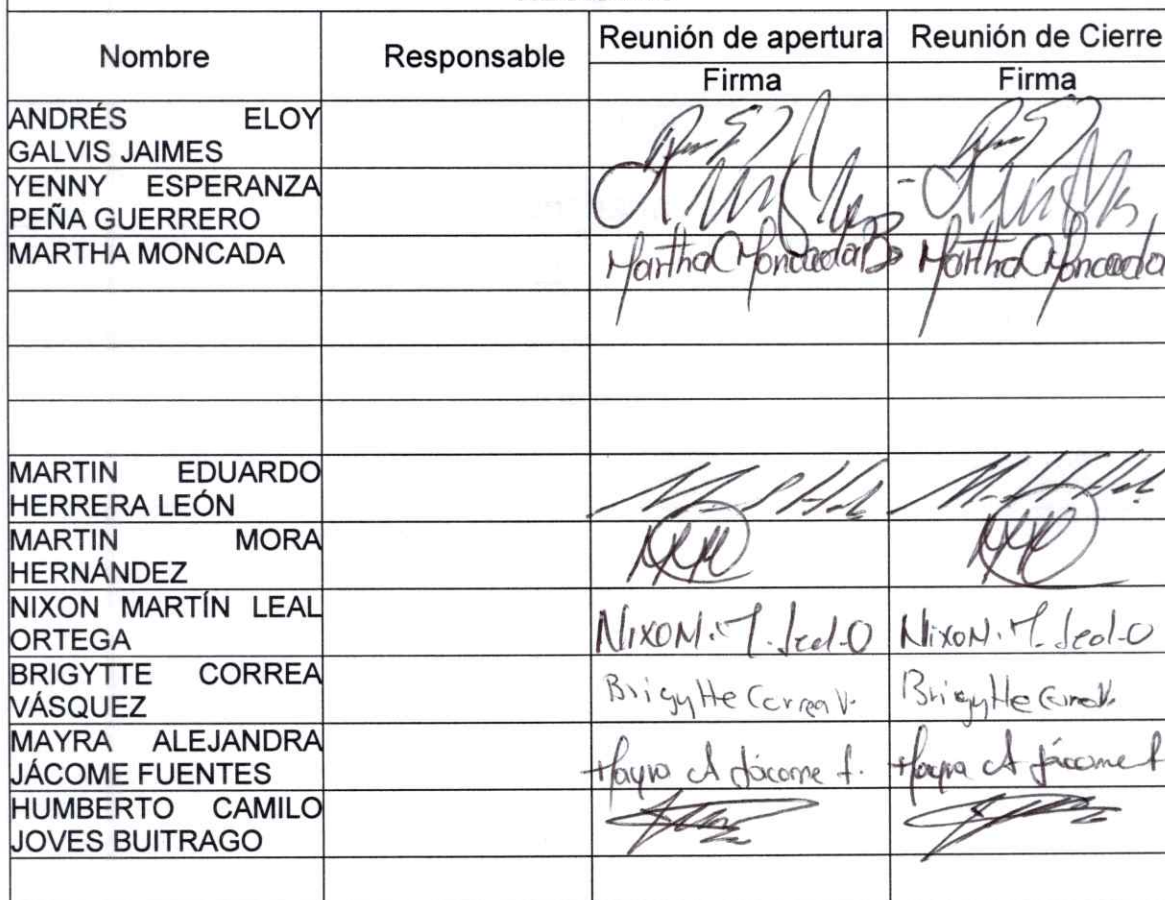 Nombre Responsable Reunión de apertura Reunión de Cierre
Firma Firma
ANDRÉS ELOY
GALVIS JAIMES
YENNY ESPERANZA
PEÑA GUERRERO
MARTHA MONCADA Martha Moncada B Martha Moncada
MARTIN EDUARDO
HERRERA LEÓN
MARTIN MORA
HERNÁNDEZ
NIXON MARTÍN LEAL
ORTEGA NixoN. M. Leal-O NixoN. M. Leal-O
BRIGYTTE CORREA
VÁSQUEZ Brigytte Correa V. Brigytte Correa V.
MAYRA ALEJANDRA
JÁCOME FUENTES Mayra A Jácome f. Mayra A Jácome f
HUMBERTO CAMILO
JOVES BUITRAGO